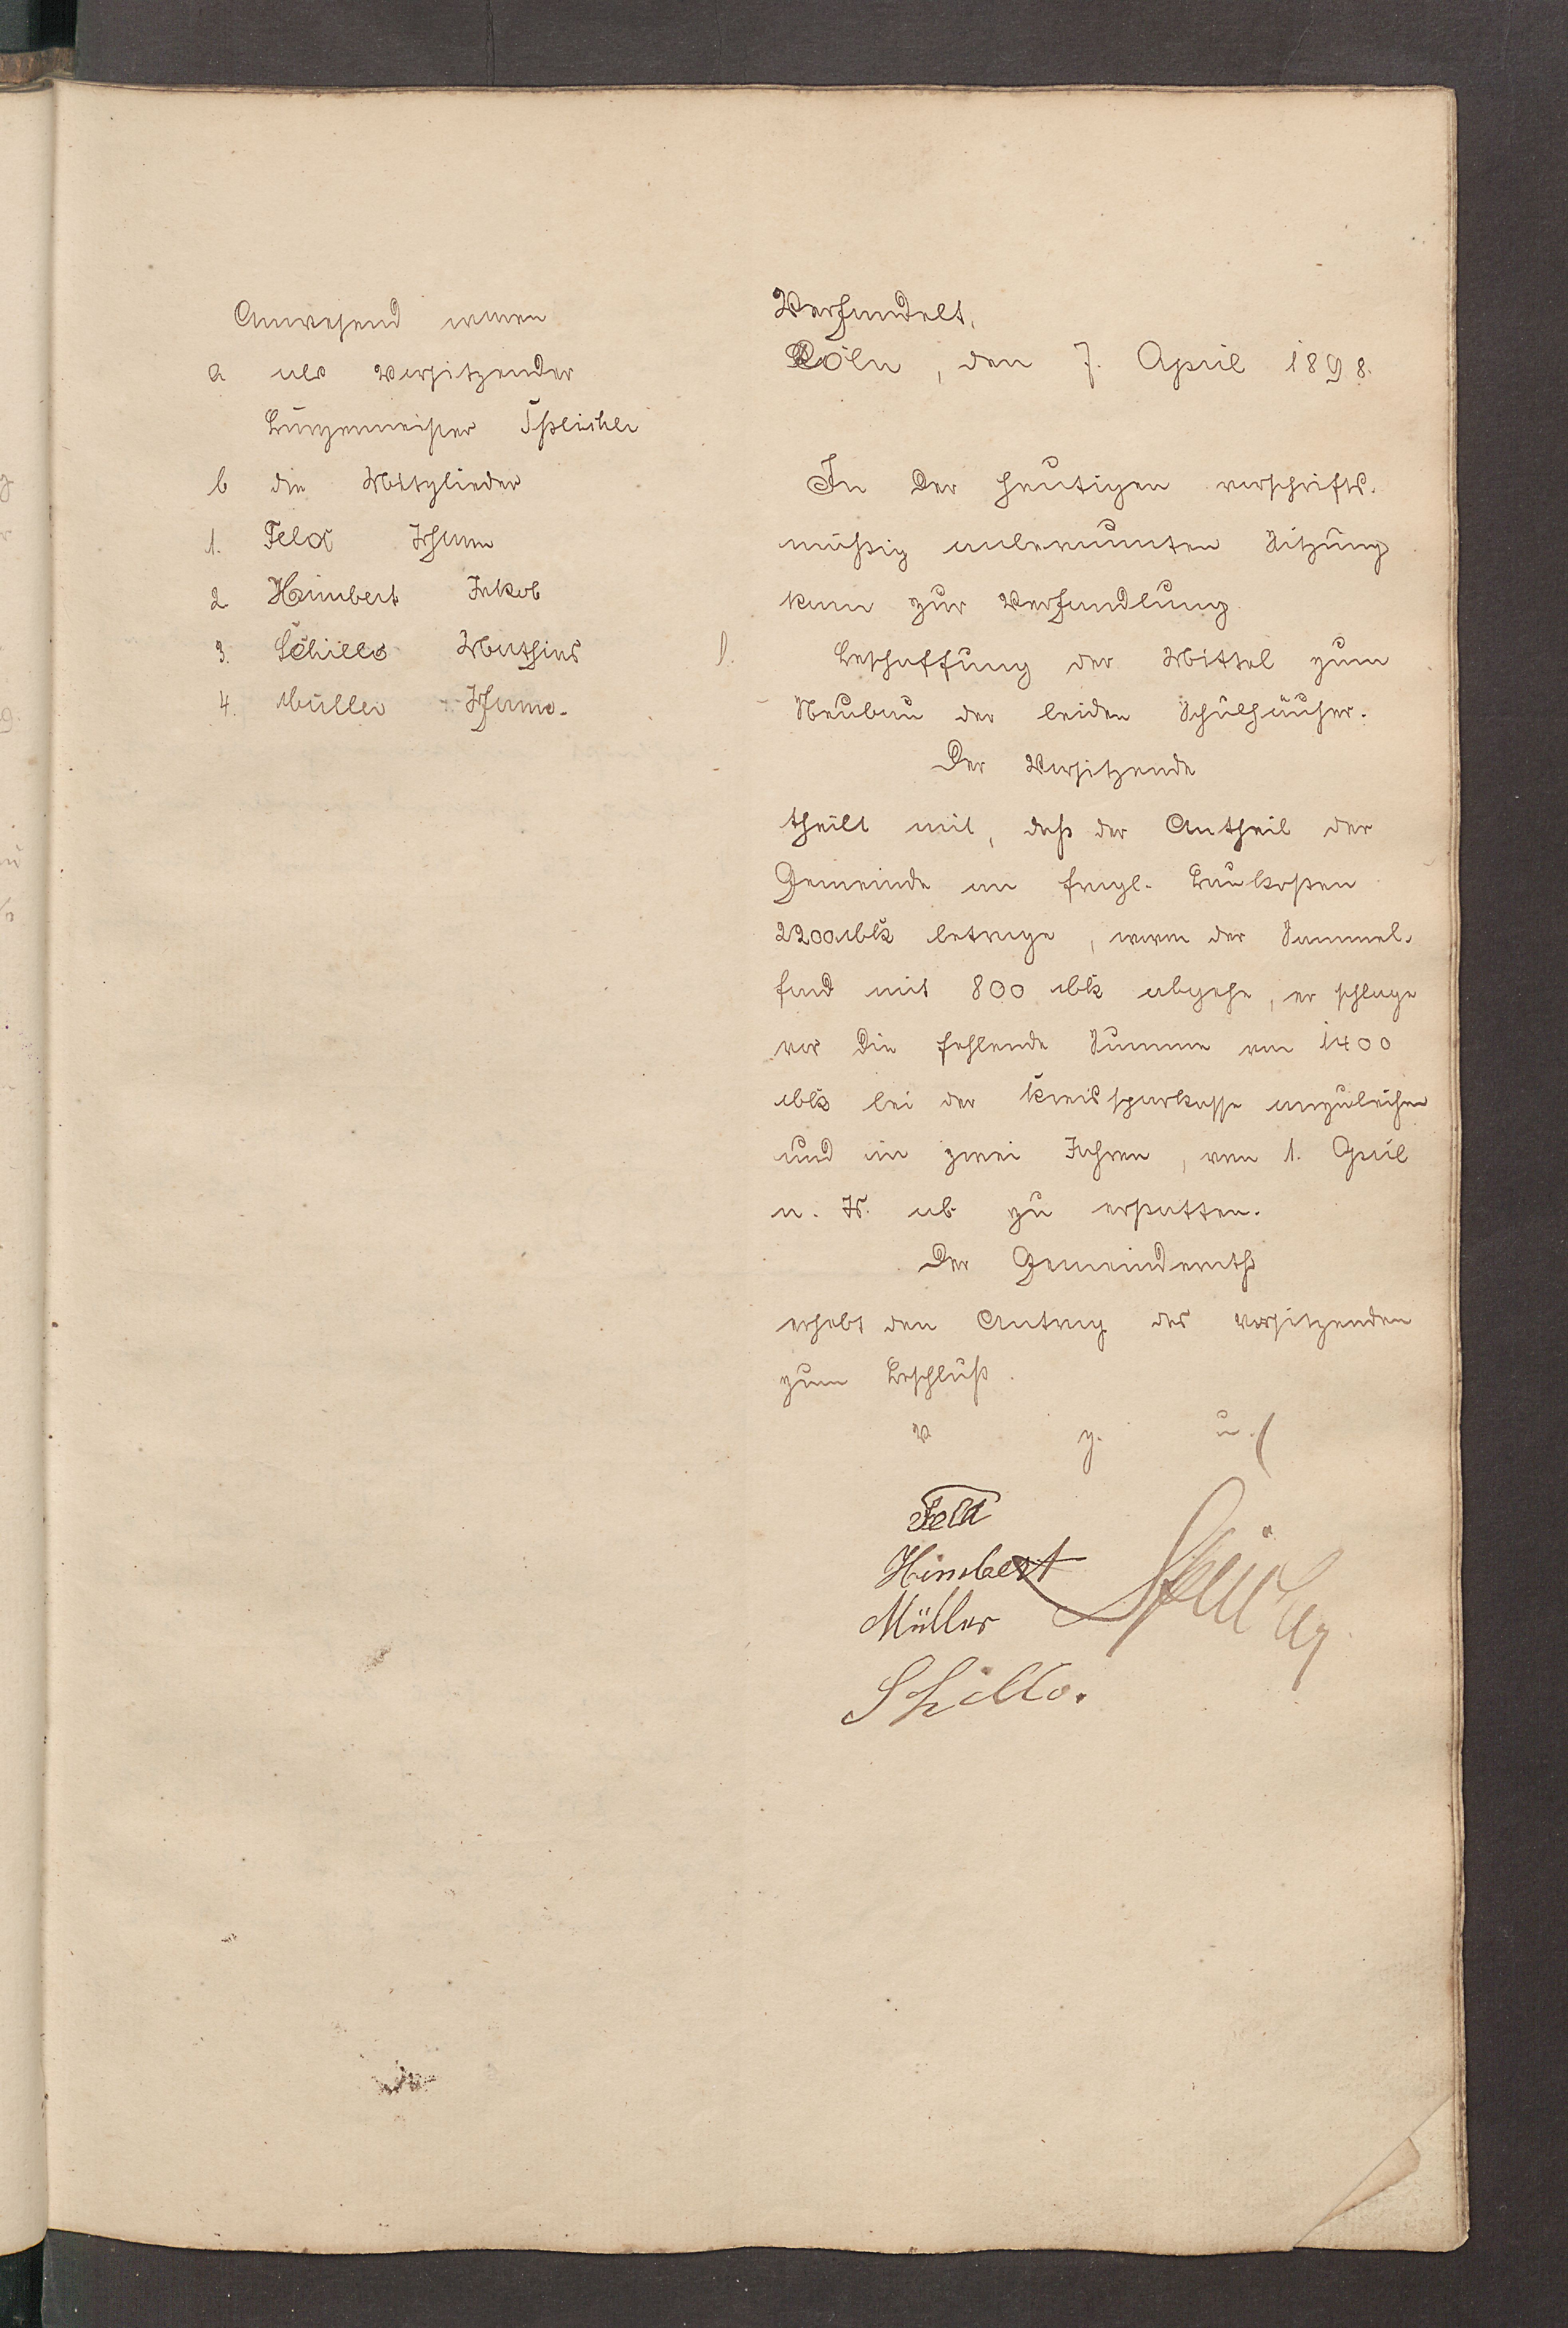 Anwesend waren
a als Vorsitzender
Bürgermeister Speicher
b die Mitglieder
1. Feld Johann
2 Himbert Jakob
3. Schillo Mathias
4. Müller Johann.
Verhandelt,
Cöln, den 7. April 1898.
In der heutigen vorschrifts-
mäßig anberaumten Sitzung
kam zur Verhandlung
1. Beschaffung der Mittel zum
Neubau der beiden Schulhäuser.
Der Vorsitzende
theilt mit, daß der Antheil der
Gemeinde an fragl. Baukosten
2200 Mk betrage, wovon der Sammel-
fond mit 800 Mk abgehe, er schlage
vor die fehlende Summe von 1400
Mk bei der Kreissparkasse anzuleihen
und in zwei Jahren, vom 1. April
n. Js. ab zu erstatten.
Der Gemeinderath
erhebt den Antrag des Vorsitzenden
zum Beschluß.
v. g. u.
Feld
Himbert
Müller
Speicher
Schillo.